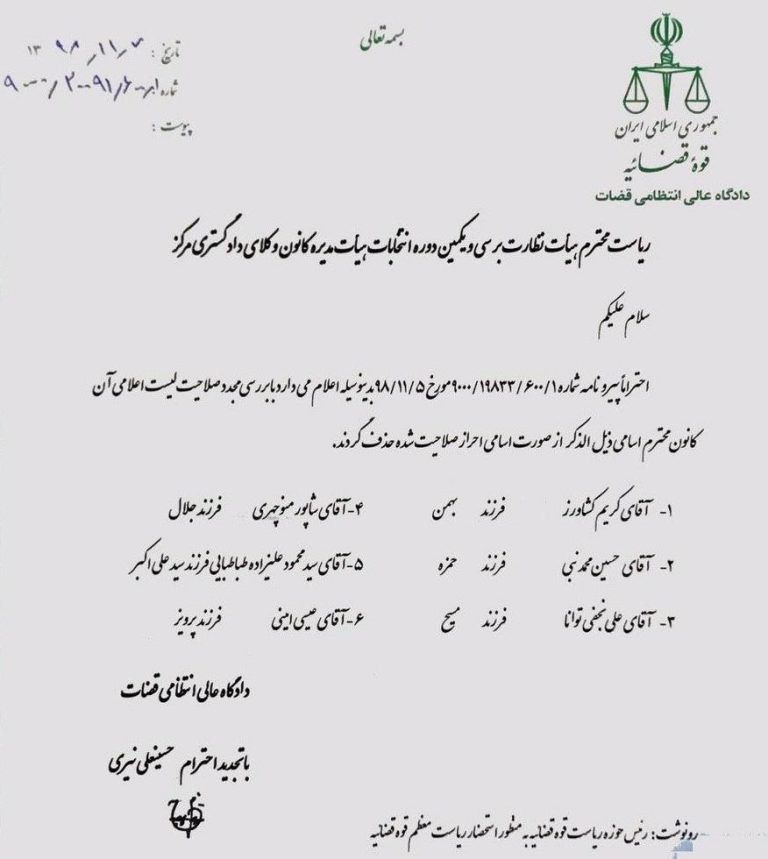 بسمه تعالی
تاریخ: ۱۳۹۸/۱۱/۷
شماره
پیوست:
جمهوری اسلامی ایران
قوهٔ قضائیه
دادگاه عالی انتظامی قضات
ریاست محترم هیأت نظارت بر سی و یکمین دوره انتخابات هیأت مدیره کانون وکلای دادگستری مرکز
سلام علیکم
احتراماً پیرو نامه شماره ۹۰۰۰/۱۹۸۳۳/۶۰۰/۱ مورخ ۹۸/۱۱/۵ بدینوسیله اعلام می دارد با بررسی مجدد صلاحیت لیست اعلامی آن
کانون محترم اسامی ذیل الذکر از صورت اسامی احراز صلاحیت شده حذف گردند.
۱- آقای کریم کشاورز فرزند بهمن ۴- آقای شاپور منوچهری فرزند جلال
۲- آقای حسین محمد نبی فرزند حمزه ۵- آقای سید محمود علیزاده طباطبایی فرزند سید علی اکبر
۳- آقای علی نجفی توانا فرزند مسیح ۶- آقای عیسی امینی فرزند پرویز
دادگاه عالی انتظامی قضات
با تجدید احترام حسینعلی نیری
رونوشت: رئیس حوزه ریاست قوه قضائیه به منظور استحضار ریاست معظم قوه قضائیه